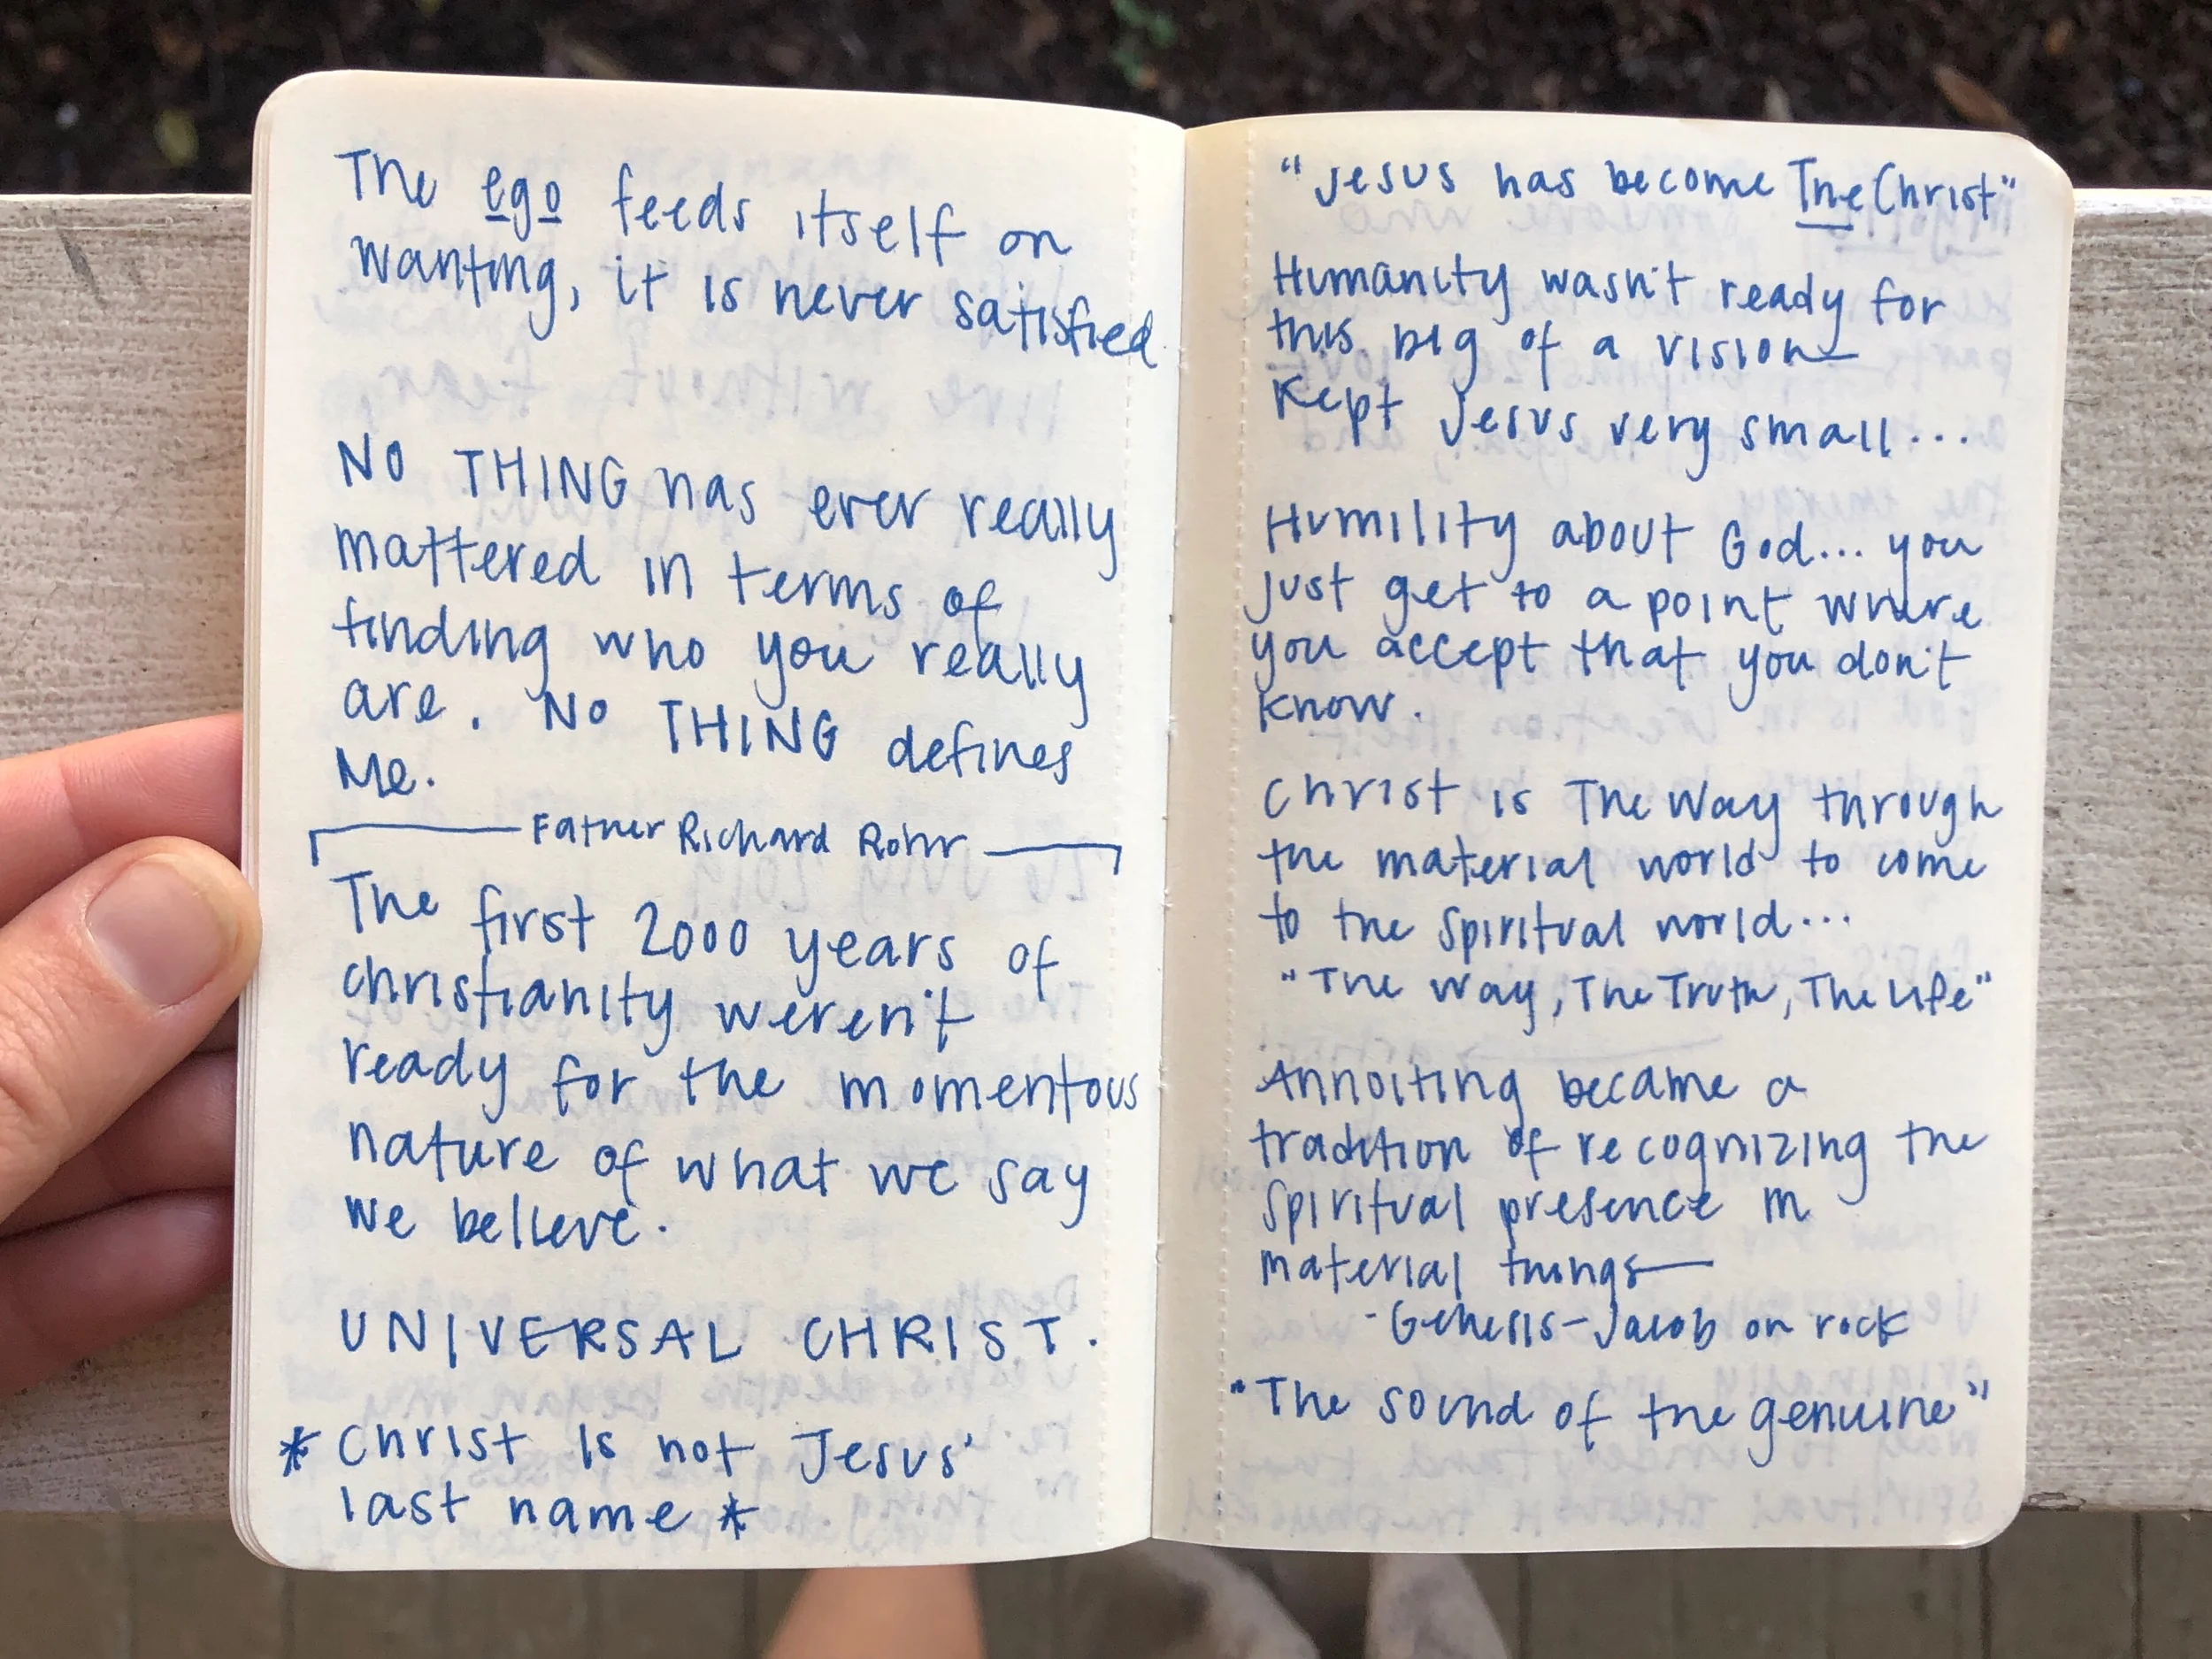 The ego feeds itself on
wanting, it is never satisfied.
NO THING has ever really
mattered in terms of
finding who you really
are. NO THING defines
Me.
Father Richard Rohr
The first 2000 years of
christianity weren't
ready for the momentous
nature of what we say
we believe.
UNIVERSAL CHRIST.
* Christ is not Jesus'
last name *
"Jesus has become The Christ"
Humanity wasn't ready for
this big of a vision—
Kept Jesus very small...
Humility about God... you
just get to a point where
you accept that you don't
know.
Christ is The Way through
the material world to come
to the spiritual world...
"The Way, The Truth, The Life"
Annoiting became a
tradition of recognizing the
spiritual presence in
material things—
-Genesis-Jacob on rock
"The sound of the genuine"